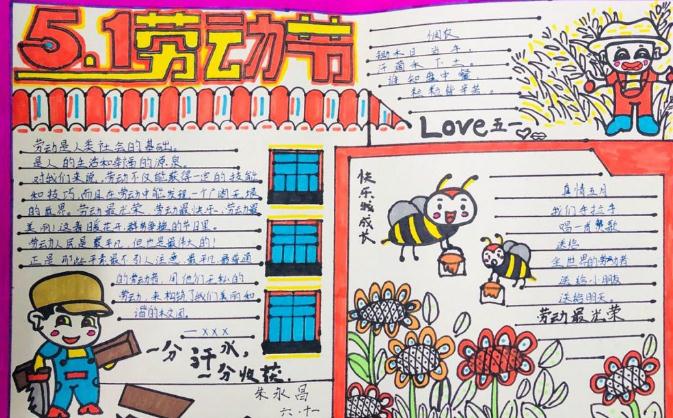 5.1劳动节
悯农
锄禾日当午,
汗滴禾下土。
谁知盘中餐
粒粒皆辛苦。
Love五一
劳动是人类社会的基础。
是人的生活和幸福的源泉。
对我们来说,劳动不仅能获得一定的技能
和技巧,而且在劳动中能发现一个广阔无垠
的世界。劳动最光荣、劳动最快乐、劳动最
美丽!这春暖花开、群的季节里。
劳动人民是最平凡,但也是最伟大的!
正是那些平素最不引人注意、最平凡最普通
的劳动者,用他们无私的
劳动,来构筑了我们美丽和
谐的校园。
—xxx
一分汗水,
一分收获
朱永昌
六.十一
快乐成长
真情五月
我们手拉手
唱一首赞歌
送给
全世界的劳动者
送给小朋友
送给明天。
劳动最光荣